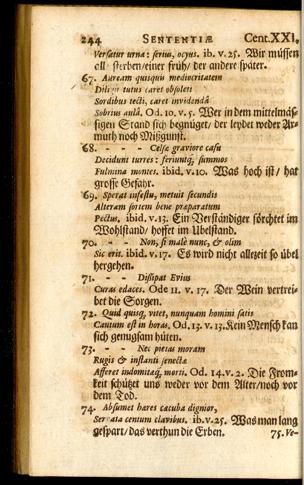 244 SENTENTIÆ Cent.XXI.
Versatur urna: serius, ocyus. ib. v. 25. Wir müssen
all sterben/einer früh/ der andere später.
67. Auream quisquis mediocritatem
Diligit tutus caret obsoleti
Sordibus tecti, caret invidendâ
Sobrius aulâ. Od. 10. v. 5. Wer in dem mittelmäs-
sigen Stand sich begnüget/ der leydet weder Ar-
muth noch Mißgunst.
68. - - - Celsæ graviore casu
Decidunt turres: feriuntq; summos
Fulmina montes. ibid. v. 10. Was hoch ist/ hat
grosse Gefahr.
69. Sperat infestis, metuit secundis
Alteram sortem bene præparatum
Pectus. ibid. v. 13. Ein Verständiger förchtet im
Wohlstand/ hoffet im Ubelstand.
70. - - Non, si malè nunc, & olim
Sic erit. ibid. v. 17. Es wird nicht allezeit so übel
hergehen.
71. - - Dissipat Evius
Curas edaces. Ode 11. v. 17. Der Wein vertrei-
bet die Sorgen.
72. Quid quisq, vitet, nunquam homini satis
Cautum est in horas. Od. 13. v. 13. Kein Mensch kan
sich genugsam hüten.
73. - - Nec pietas moram
Rugis & instanti senectæ
Afferet indomitæq, morti. Od. 14. v. 2. Die From-
keit schützet uns weder vor dem Alter/noch vor
dem Tod.
74. Absumet hæres cæcuba dignior,
Servata centum clavibus. ib. v. 25. Was man lang
gespart/ das verthun die Erben. 75. Ve-